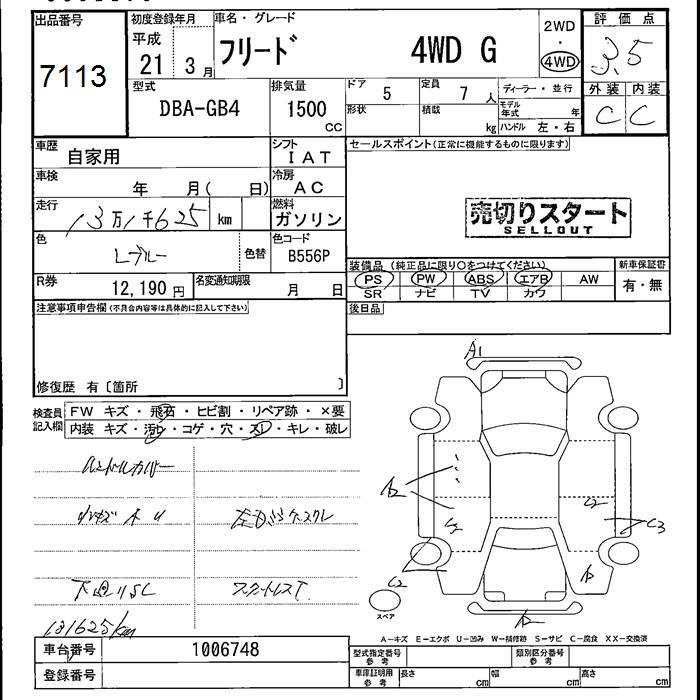 出品番号
7113
初度登録年月
平成
21 3月
車名・グレード
フリード 4WD G
2WD
4WD
評価点
3.5
外装 内装
C C
型式
DBA-GB4
排気量
1500
CC
ドア
5
定員
7 人
形状
積載
kg
ディーラー・並行
モデル
年式 年
ハンドル 左・右
車歴
自家用
シフト
IAT
車検
年 月( 日)
冷房
AC
走行
13万1千625 km
燃料
ガソリン
色
色替
色コード
B556P
R券
12,190 円
名変通知期限
月 日
セールスポイント(正常に機能するものに限ります)
売切りスタート
SELLOUT
装備品 (純正品に限り○をつけてください)
PS PW ABS エアB AW
SR ナビ TV カワ
新車保証書
有・無
後日品
注意事項申告欄(不具合内容等は具体的に記入して下さい)
修復歴 有〔箇所 〕
検査員
記入欄
FW キズ・飛石・ヒビ割・リペア跡・×要
内装 キズ・汚レ・コゲ・穴・スレ・キレ・破レ
ハンドルカバー
131625km
A1
A2
C2
C2
C3
A
C2
A2
スペア
A－キズ E－エクボ U－凹み W－補修跡 S－サビ C－腐食 XX－交換済
車台番号
1006748
登録番号
型式指定番号
参考
類別区分番号
参考
車庫証明用
参考
長さ cm
幅 cm
高さ cm